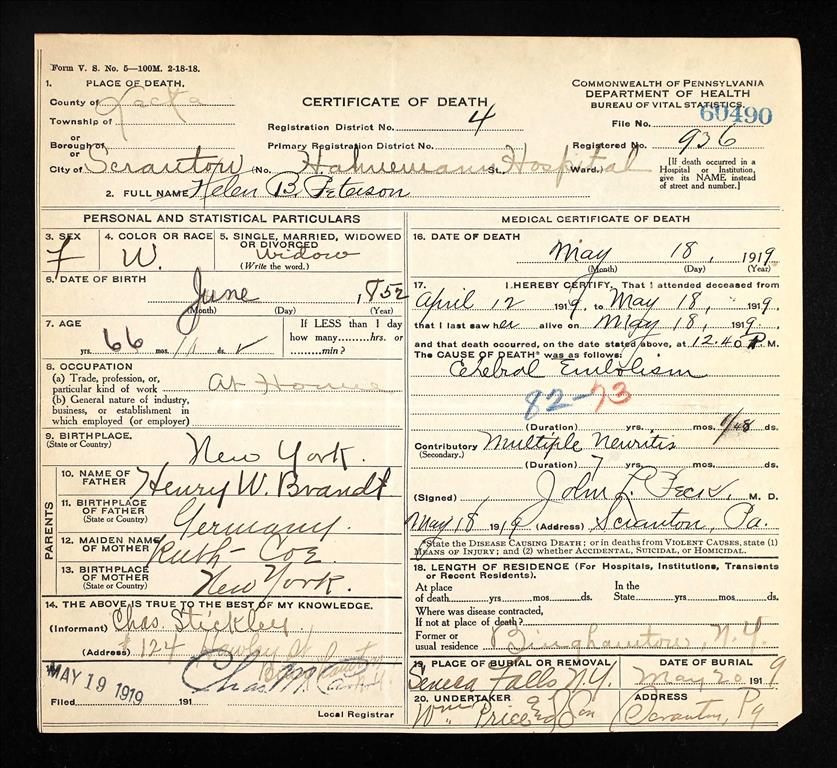 Form V. S. No. 5—100M. 2-18-18.
1. PLACE OF DEATH.
County of Lacka
Township of
or
Borough of
or
City of Scranton
CERTIFICATE OF DEATH
Registration District No. 4
Primary Registration District No.
(No. Hahnemann Hospital St., Ward.)
COMMONWEALTH OF PENNSYLVANIA
DEPARTMENT OF HEALTH
BUREAU OF VITAL STATISTICS.
File No. 60490
Registered No. 936
[If death occurred in a
Hospital or Institution,
give its NAME instead
of street and number.]
2. FULL NAME Helen B. Peterson
PERSONAL AND STATISTICAL PARTICULARS
3. SEX F
4. COLOR OR RACE W.
5. SINGLE, MARRIED, WIDOWED
OR DIVORCED widow
(Write the word.)
6. DATE OF BIRTH
June 1852
(Month) (Day) (Year)
7. AGE
66 yrs. mos. ds.
If LESS than 1 day
how many hrs. or
min?
8. OCCUPATION
(a) Trade, profession, or
particular kind of work At Home
(b) General nature of industry,
business, or establishment in
which employed (or employer)
9. BIRTHPLACE.
(State or Country)
New York.
PARENTS
10. NAME OF
FATHER Henry W. Brandt
11. BIRTHPLACE
OF FATHER
(State or Country) Germany.
12. MAIDEN NAME
OF MOTHER Ruth Coe
13. BIRTHPLACE
OF MOTHER
(State or Country) New York.
14. THE ABOVE IS TRUE TO THE BEST OF MY KNOWLEDGE.
(Informant) Chas. Stickley
(Address) 124 St
MAY 19 1919
Filed 191
Local Registrar
MEDICAL CERTIFICATE OF DEATH
16. DATE OF DEATH
May 18, 1919
(Month) (Day) (Year)
17. I HEREBY CERTIFY, That I attended deceased from
April 12 1919, to May 18, 1919,
that I last saw her alive on May 18, 1919.
and that death occurred, on the date stated above, at 12.40 P. M.
The CAUSE OF DEATH* was as follows:
Cerebral Embolism
82-73
(Duration) yrs. mos. 1/48 ds.
Contributory Multiple Neuritis
(Secondary.)
(Duration) 7 yrs. mos. ds.
(Signed) John L. Feck, M. D.
May 18 1919 (Address) Scranton, Pa.
*State the DISEASE CAUSING DEATH; or in deaths from VIOLENT CAUSES, state (1)
MEANS OF INJURY; and (2) whether ACCIDENTAL, SUICIDAL, OR HOMICIDAL.
18. LENGTH OF RESIDENCE (For Hospitals, Institutions, Transients
or Recent Residents).
At place
of death yrs. mos. ds.
In the
State yrs. mos. ds.
Where was disease contracted,
If not at place of death?
Former or
usual residence Binghamton, N.Y.
19. PLACE OF BURIAL OR REMOVAL
Seneca Falls N.Y.
DATE OF BURIAL
May 20 1919
20. UNDERTAKER
Wm Price & Son
ADDRESS
Scranton, Pa